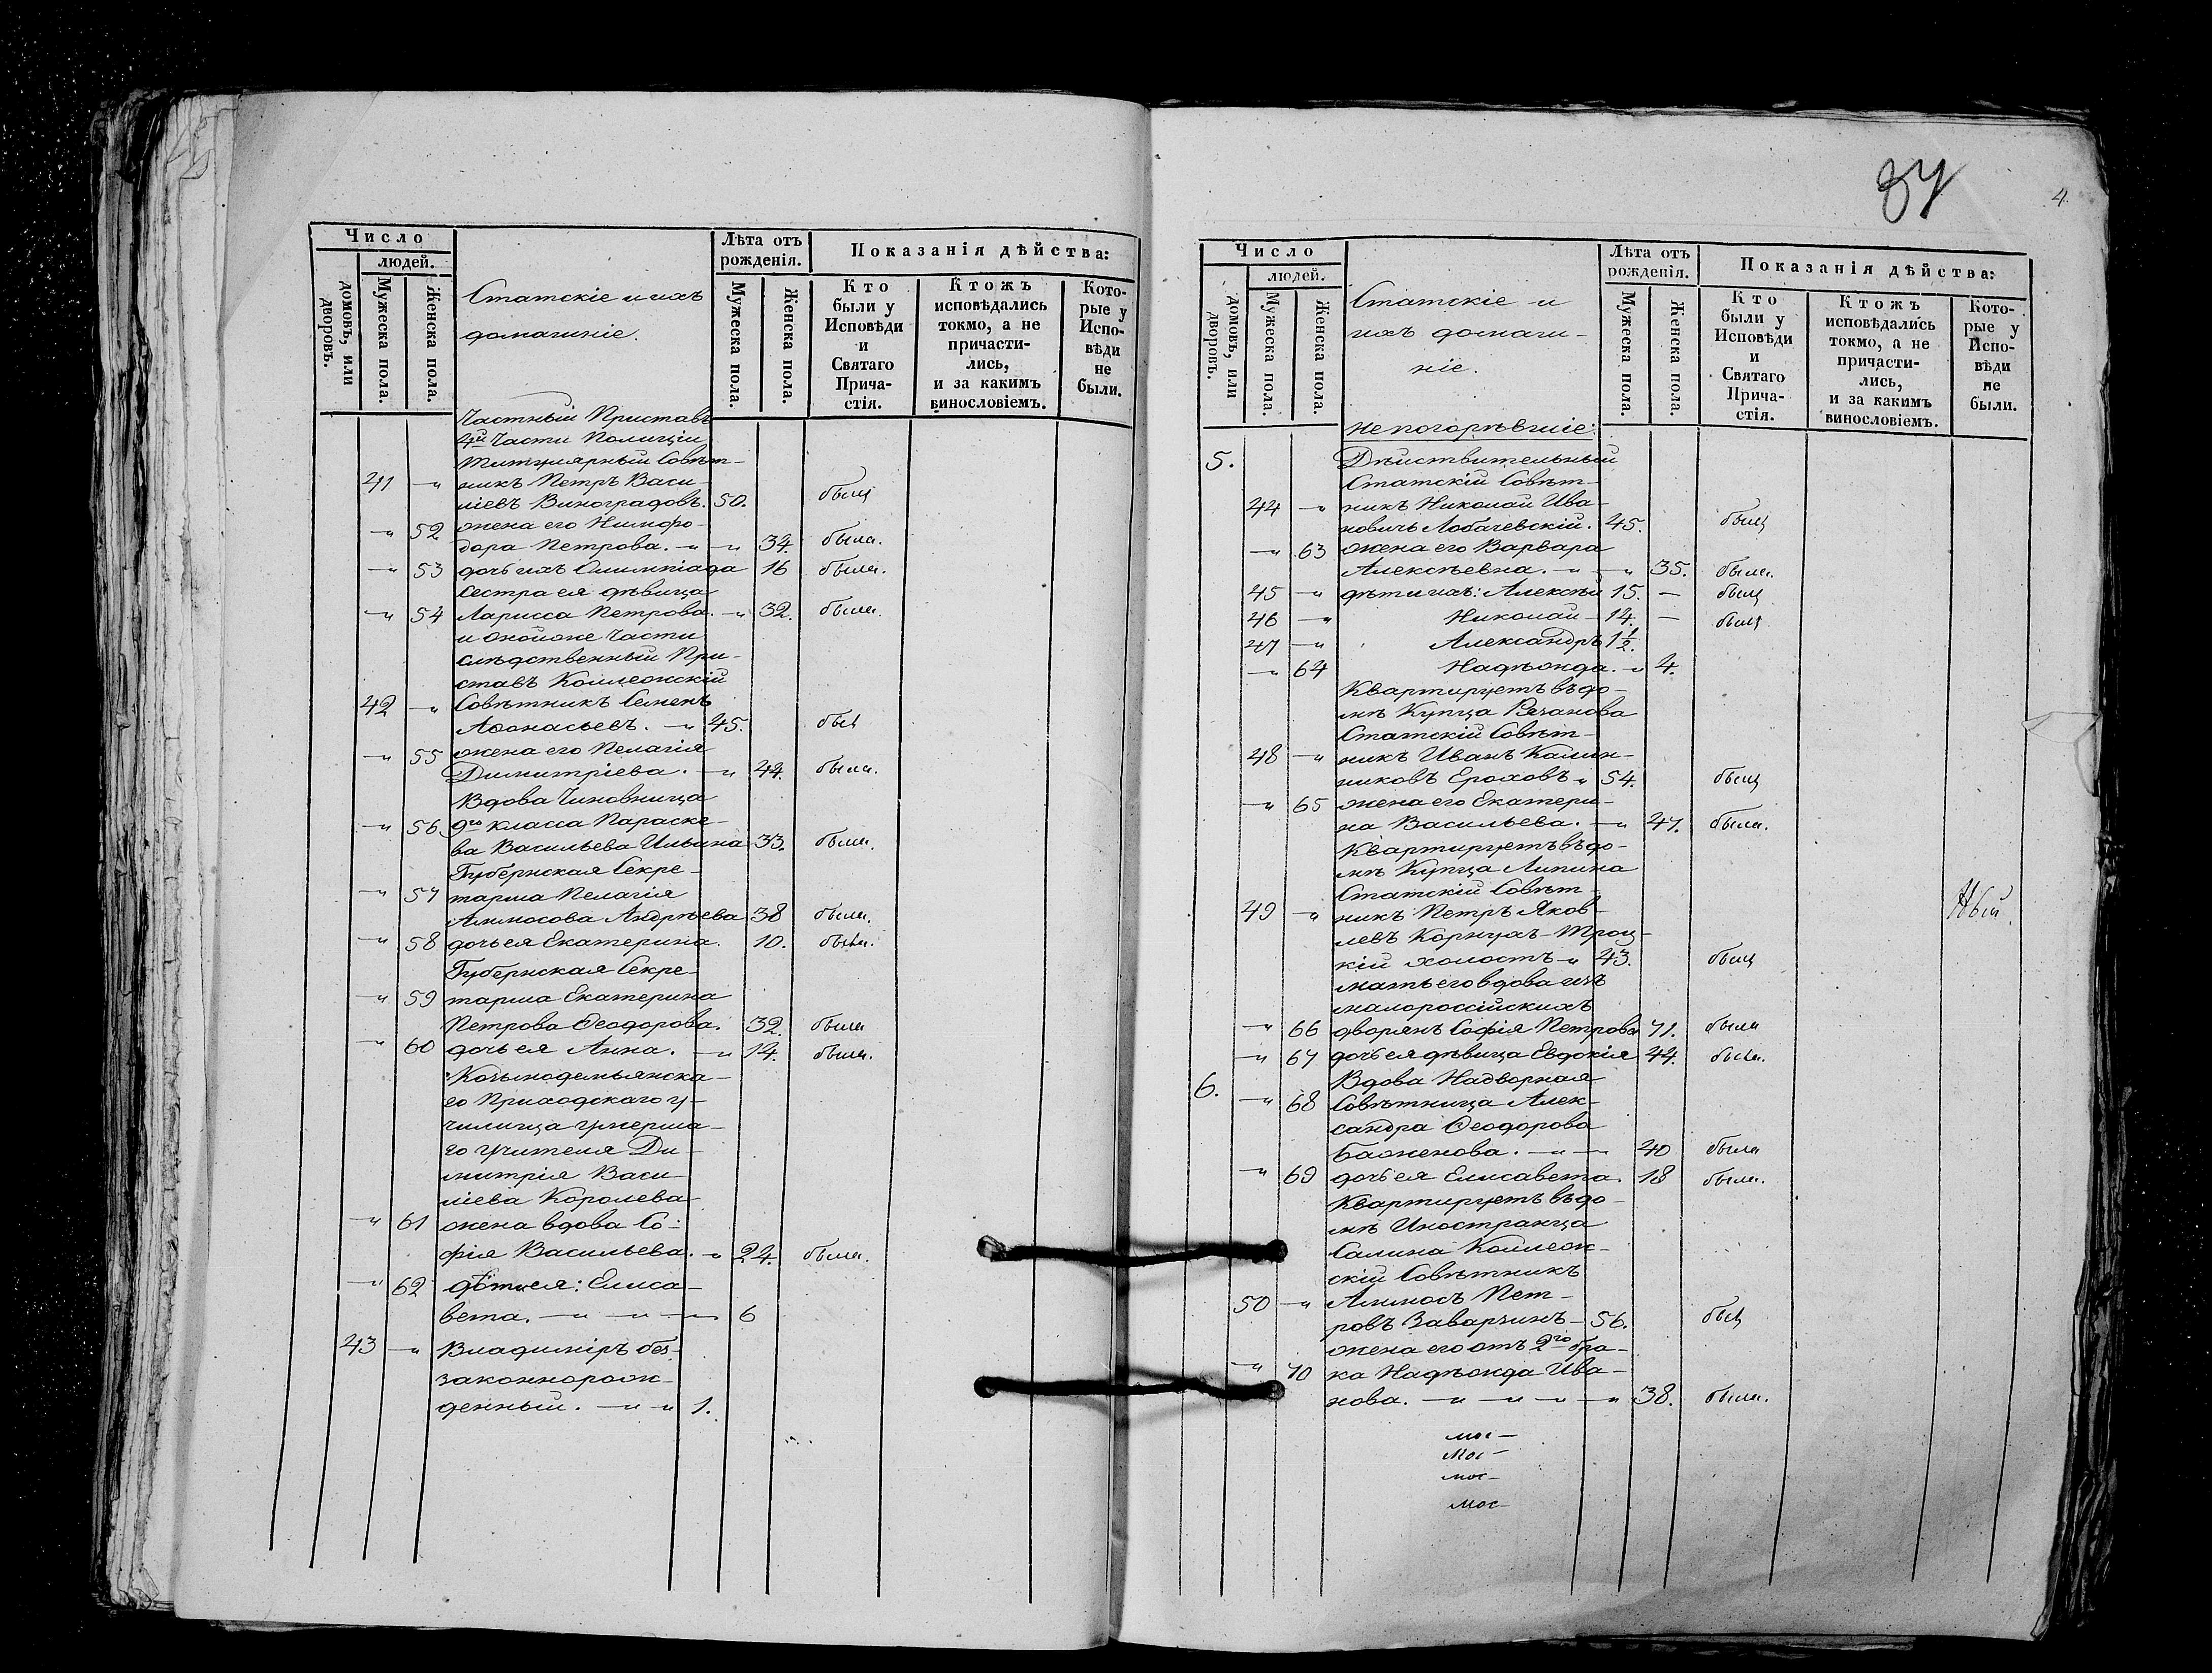 Число
людей.
домовъ, или дворовъ.
Мужеска пола.
Женска пола.
Статскіе и ихъ
домашніе.
Лѣта отъ рожденія.
Мужеска пола.
Женска пола.
Показанія дѣйства:
Кто были у Исповѣди и Святаго Прича-стія.
Ктожъ исповѣдались токмо, а не причасти-лись, и за какимъ винословіемъ.
Кото-рые у Испо-вѣди не были.
Частный Приставъ
4й Части Полиціи
Титулярный Совѣт-
41 -"- никъ Петръ Васи-
ліевъ Виноградовъ. 50. былъ
-"- 52 жена его Нимфо-
дора Петрова. -"- -"- 34. была.
-"- 53 дочь ихъ Олимпіада 16 была.
Сестра ея дѣвица
-"- 54 Ларисса Петрова. -"- 32. была.
и оной же Части
слѣдственный При-
ставъ Коллежскій
42 -"- Совѣтникъ Семенъ
Аѳонасьевъ. -"- 45. былъ
-"- 55 жена его Пелагія
Димитріева. -"- 44. была.
Вдова Чиновница
-"- 56 9го класса Параске-
ва Васильева Ильина 33. была.
Губернская Секре-
-"- 57 тарша Пелагія
Аммосова Андрѣева 38 была.
-"- 58 дочь ея Екатерина. 10. была.
Губернская Секре-
-"- 59 тарша Екатерина
Петрова Ѳеодорова. 32. была
-"- 60 дочь ея Анна. -"- 14. была.
Козьмодемьянска-
го Приходскаго у-
чилища умерша-
го учителя Ди-
митрія Васи-
ліева Королева
-"- 61 жена вдова Со-
фія Васильева. -"- 24. была.
-"- 62 дѣти ея: Елиса-
вета. -"- -"- -"- 6
43 -"- Владиміръ без-
законнорож-
денный. -"- -"- 1.
37
4.
Число
людей.
домовъ, или дворовъ.
Мужеска пола.
Женска пола.
Статскіе и
ихъ домаш-
ніе.
Лѣта отъ рожденія.
Мужеска пола.
Женска пола.
Показанія дѣйства:
Кто были у Исповѣди и Святаго Прича-стія.
Ктожъ исповѣдались токмо, а не причасти-лись, и за какимъ винословіемъ.
Кото-рые у Испо-вѣди не были.
Непогорѣвшіе:
5. Дѣйствительный
Статскій Совѣт-
44 -"- никъ Николай Ива-
новичь Лобачевскій. 45. былъ
-"- 63 жена его Варвара
Алексѣевна. -"- -"- 35. была.
45 -"- дѣти ихъ: Алексѣй 15. — былъ
46 -"- Николай - 14. — былъ
47 -"- Александръ 1½.
-"- 64 Надѣжда. -"- 4.
Квартируетъ въ до-
мѣ Купца Рязанова
Статскій Совѣт-
48 -"- никъ Иванъ Калин-
никовъ Ероховъ -"- 54. былъ
-"- 65 жена его Екатери-
на Васильева. -"- 47. была.
Квартируетъ въ до-
мѣ Купца Лыпина
Статскій Совѣт-
49 -"- никъ Петръ Яков-
левъ Корнухъ-Троц-
кій холостъ -"- 43. былъ
мать его вдова изъ
малороссійскихъ
-"- 66 дворянъ Софія Петрова 71. была
-"- 67 дочь ея дѣвица Евдокія 44. была.
6. Вдова Надворная
-"- 68 Совѣтница Алек-
сандра Ѳеодорова
Баженова. -"- -"- 40 была
-"- 69 дочь ея Елисавета. 18 была.
Квартируетъ въ до-
мѣ Иностранца
Салина Коллеж-
скій Совѣтникъ
50 -"- Аммосъ Пет-
ровъ Заварзинъ - 56. былъ
жена его отъ 2го бра-
-"- 70 ка Надѣжда Ива-
нова. -"- -"- -"- -"- 38. была.